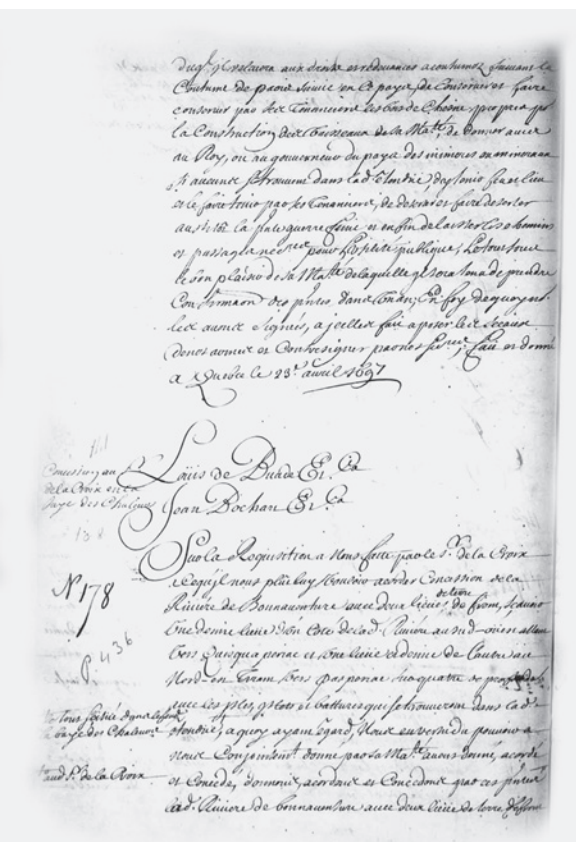 aux droits et redevances acoutumez suivant la
Coutume de paris suivie en ce payis, de Conserver et faire
conserver par ses tenanciers les bois de Chesne propres pr
la Construction des vaisseaux de sa Matté, de donner avis
au Roy, ou au gouverneur du payis des mines ou minieraux
si aucunes se trouvent dans lad. étendue, d'y tenir feu et lieu
et le faire tenir par ses tenanciers, de deserter et faire deserter
aussi tôt la guerre finie et enfin de laisser les chemins
et passages pour l'utilité publique, Le tout sous
le bon plaisir de sa Matté de laquelle il sera tenu de prendre
Confirmaon des pntes dans un an, En foy de quoy
les avons signées, a icelles fait aposer les sceaux
de nos armes et Contresigner par nos Fait et donné
a Quebec le 23e avril 1697
Concession au Sr
de la Croix en la
baye des Chaleurs
138
Louis de Buade Et. Ca
Jean Bochart Et. Ca
Sur la Requisition a Nous faite par le Sr. de la Croix
a ce qu'il nous plût luy vouloir acorder Concession de la
Riviere de Bonnaventure avec deux lieües de terre de front, sçavoir
Une demie lieüe d'un Coté de lad. Riviere au sud-oüest allant
Vers et une lieüe et demie de l'autre au
Nord-est tirant vers sur quatre de profondeur
avec les isles, islets et battures qui se trouveront dans lad.
étendüe, a quoy ayant égard, Nous en vertu du pouvoir a
Nous Conjointemt. donné par sa Matté avons donné, acordé
et Concedé, donnons, acordons et Concedons par ces pntes
lad. Riviere de bonnaventure avec deux lieües de terre
No 178
p. 436
baye des Chaleurs
aud. Sr. de la Croix